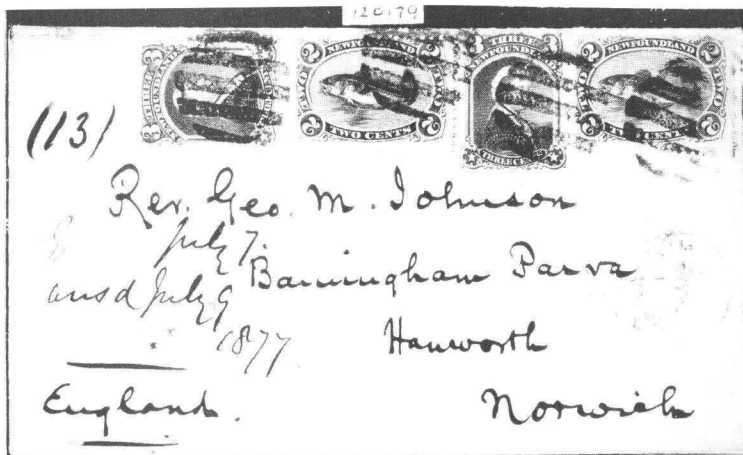 120179
THREE NEWFOUNDLAND
2 NEWFOUNDLAND 2
2 TWO CENTS 2
3 THREE
NEWFOUNDLAND
THREE CE
2 NEWFOUNDLAND 2
2 TWO CENTS 2
(13)
Rev. Geo. M. Johnson
July 7.
Barningham Parva
ansd July 9
1877
Hanworth
England.
Norwich